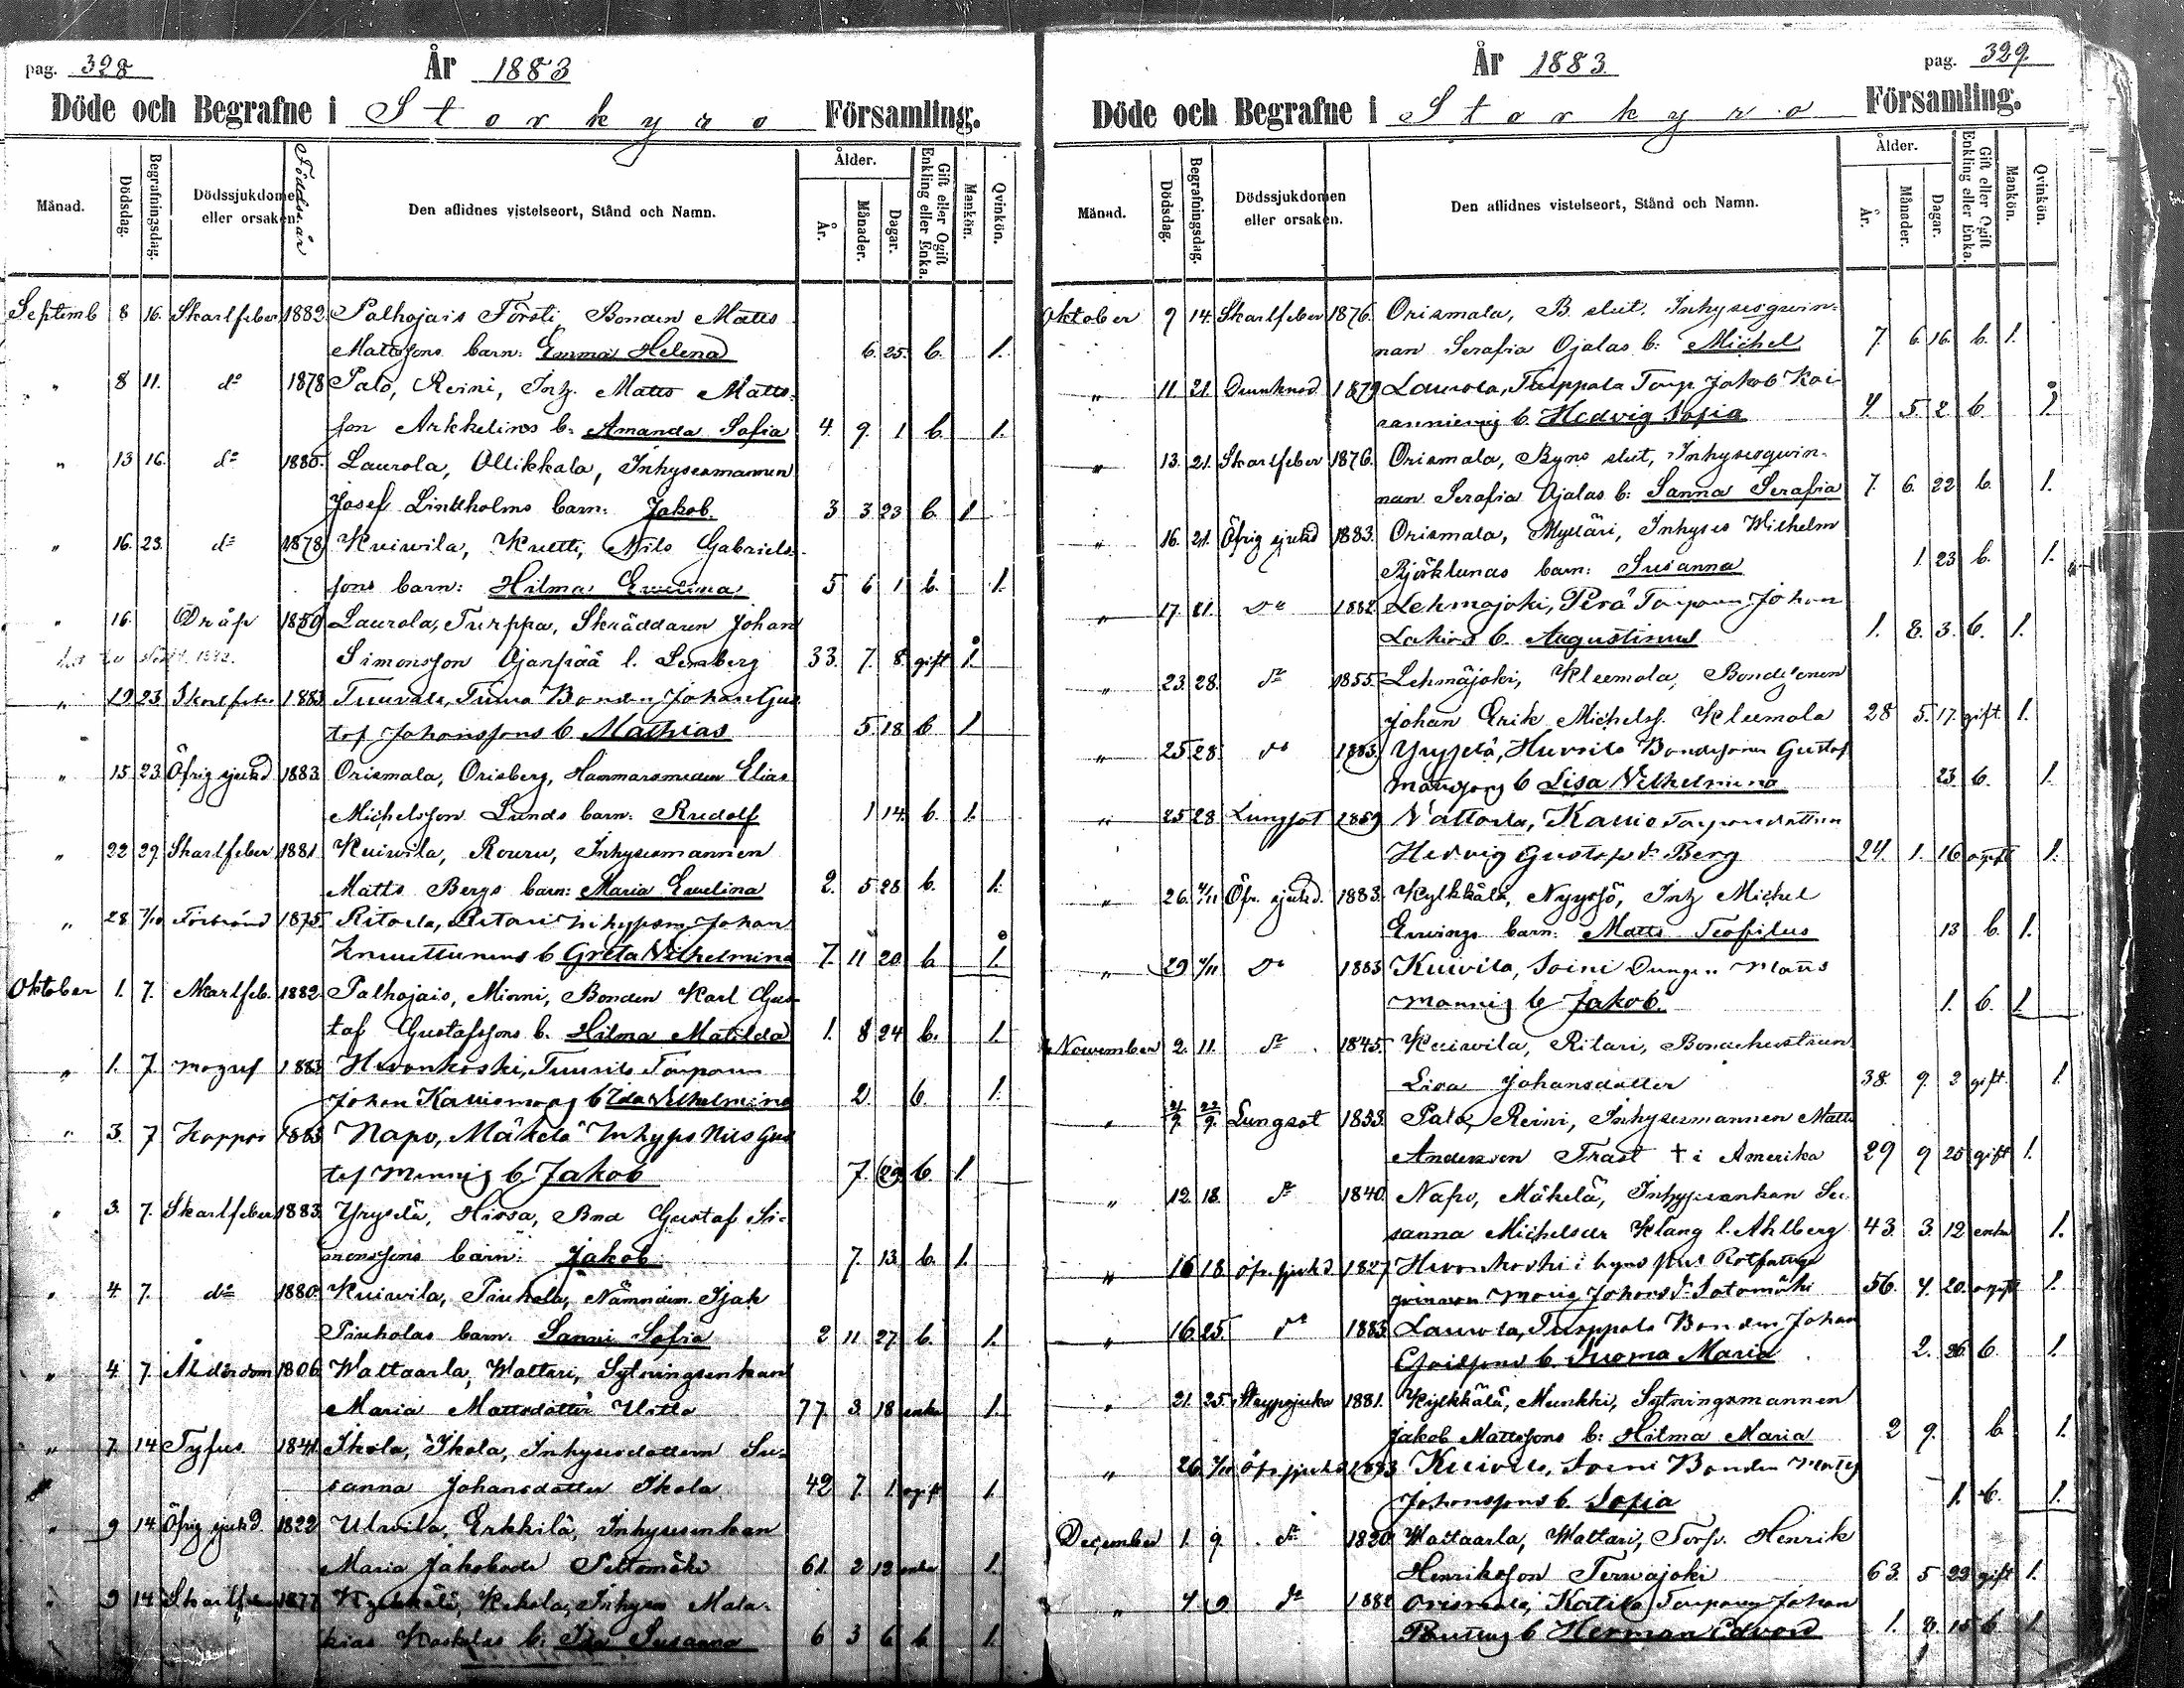 pag. 328
År 1883
Döde och Begrafne i Storkyro Församling.
Månad. Dödsdag. Begrafningsdag. Dödssjukdomen eller orsaken. Födelseår Den aflidnes vistelseort, Stånd och Namn. Ålder. År. Månader. Dagar. Gift eller Ogift Enkling eller Enka. Mankön. Qvinkön.
Septemb 8 16. Skarlfeber 1882. Palhojais Försti, Bonden Matts
Mattssons barn: Emma Helena 6. 25. b. 1.
" 8 11. do 1878 Palo, Reini, Inh. Matts Matts-
son Arkkelins b: Amanda Sofia 4. 9. 1 b. 1.
" 13 16. do 1880. Laurola, Ollikkala, Inhysesmannen
Josef Lindholms barn: Jakob. 3 3 23 b. 1
" 16. 23. do 1878 Kuiwila, Krutti, Nils Gabriels-
sons barn: Hilma Ewelina 5 6 1 b. 1.
" 16. Dråp 1850 Laurola, Turppa, Skräddaren Johan
Simonsson Ojanpää l. Lemberg 33. 7. 8. gift 1.
" 19 23 Skarlfeber 1883 Tuurala, Tuura Bonden Johan Gus
taf Johanssons b Mathias 5 18 b 1
" 15 23 Öfrig sjukd 1883. Orismala, Orisberg, Hammarsmeden Elias
Michelsson Lunds barn: Rudolf 1 14 b. 1.
" 22 29. Skarlfeber 1881 Kuiwila, Rouru, Inhysesmannen
Matts Bergs barn: Maria Ewelina 2. 5 28 b. 1.
" 28 7/10 Förbränd 1875. Ritaala, Ritari Inhysesm Johan
Knuuttinens b Greta Vilhelmina 7. 11 20 b 1.
Oktober 1. 7. Skarlfeb. 1882. Palhojais, Minni, Bonden Karl Gus-
taf Gustafssons b. Hilma Matilda 1. 8 24 b. 1.
" 1. 7. 1883 Hevonkoski, Tuurila Torparen
Johan b Ida Vilhelmina 2. b. 1.
" 3. 7 Koppor 1883 Napo, Mäkelä Inhyses Nils Gus
taf Mannis b Jakob 7. 29 b. 1.
" 3. 7. Skarlfeber 1883. Yryselä, Hirsa, Bnd Gustaf Si-
monssons barn: Jakob 7. 13. b. 1.
" 4. 7. do 1880. Kuiwila, Pärkola, Nämndem. Isak
Pärkolas barn: Sanni Sofia 2 11 27 b. 1.
" 4. 7. Ålderdom 1806. Wattaarla, Wattari, Sytningsenkan
Maria Mattsdotter 77. 3. 18 enka 1.
" 7. 14 Tyfus 1841. Ikola, Ikola, Inhysesdottern Su-
sanna Johansdotter Ikola 42 7. 1. ogift 1.
" 9 14. Öfrig sjukd. 1822. Ulwila, Erkkilä, Inhysesenkan
Maria Jakobsdr Peltomäki 61. 2 12 enka 1.
" 9 14. Skarlfeber 1877 Kylkkälä, Kekola, Inhyses Mala-
kias Koskelas b: Ida Susanna 6 3 6 b 1.
År 1883.
pag. 329.
Döde och Begrafne i Storkyro Församling.
Månad. Dödsdag. Begrafningsdag. Dödssjukdomen eller orsaken. Den aflidnes vistelseort, Stånd och Namn. Ålder. År. Månader. Dagar. Gift eller Ogift Enkling eller Enka. Mankön. Qvinkön.
Oktober 9 14. Skarlfeber 1876. Orismala, B. slut. Inhysesqwin-
nan Serafia Ojalas b: Michel 7. 6. 16. b. 1.
" 11. 21. Drunknad. 1879 Laurola, Turppala Torp. Jakob Kai-
b. Hedvig Sofia 4. 5. 2 b. 1.
" 13. 21. Skarlfeber 1876. Orismala, Byns slut, Inhysesqwin-
nan Serafia Ojalas b: Sanna Serafia 7. 6. 22 b. 1.
" 16. 21. Öfrig sjukd 1883. Orismala, Mylläri, Inhyses Wilhelm
Björklunds barn: Susanna 1. 23 b. 1.
" 17. 21. do 1882. Lehmäjoki, Perä Torparen Johan
b. Augustinus 1. 8. 3. b. 1.
" 23. 28. do 1855. Lehmäjoki, Kleemola, Bondesonen
Johan Erik Michelss. Kleemola 28 5. 17. gift. 1.
" 25. 28. do 1883. Yryselä, Hursila Bondesonen Gustaf
b Lisa Vilhelmina 23 b. 1.
" 25 28 Lungsot 1859 Vattarla, Kauio Torparedottern
Hedvig Gustafsdr Berg 24. 1. 16 ogift 1.
" 26. 4/11 Öfr. sjukd. 1883. Kylkkälä, Nyyssö, Inh. Michel
barn: Matts Teofilus 13 b. 1.
" 29 4/11 do 1883 Kuivila, Soini Matts
Mannis b Jakob. 1. b. 1.
November 2. 11. do 1845. Kuiwila, Ritari, Bondehustrun
Lisa Johansdotter 38. 9. 2 gift. 1.
" 21/9. 22/9. Lungsot 1853. Palo, Reini, Inhysesmannen Matts
Andersson Trast † i Amerika 29 9 25 gift 1.
" 12. 18. do 1840. Napo, Mäkelä, Inhysesenkan Su-
sanna Michelsdr Klang l. Ahlberg 43. 3. 12 enka 1.
" 16 18. öfr. sjukd 1827 Hevonkoski i byns slut Rotfattige
qvinnan Maria Johansdr Salomäki 56. 4. 20. ogift 1.
" 16. 25. do 1883. Laurola, Turppala Bonden Johan
b. Suoma Maria 2. 26. b. 1.
" 21. 25. Strypsjuka 1881. Kylkkälä, Munkki, Sytningsmannen
Jakob Mattssons b: Hilma Maria 2 9. b 1.
" 26 öfr. sjukd 1883 Kuivila, Soini Bonden Matts
Johanssons b. Sofia 1. b. 1.
December 1. 9. do 1820. Wattaarla, Wattari, Torp. Henrik
Henriksson Terwajoki 63. 5 29 gift 1.
" 4 9 do 1882 Orismala, Katila Torparen Johan
b Herman Edvard 1. 8. 15 b 1.